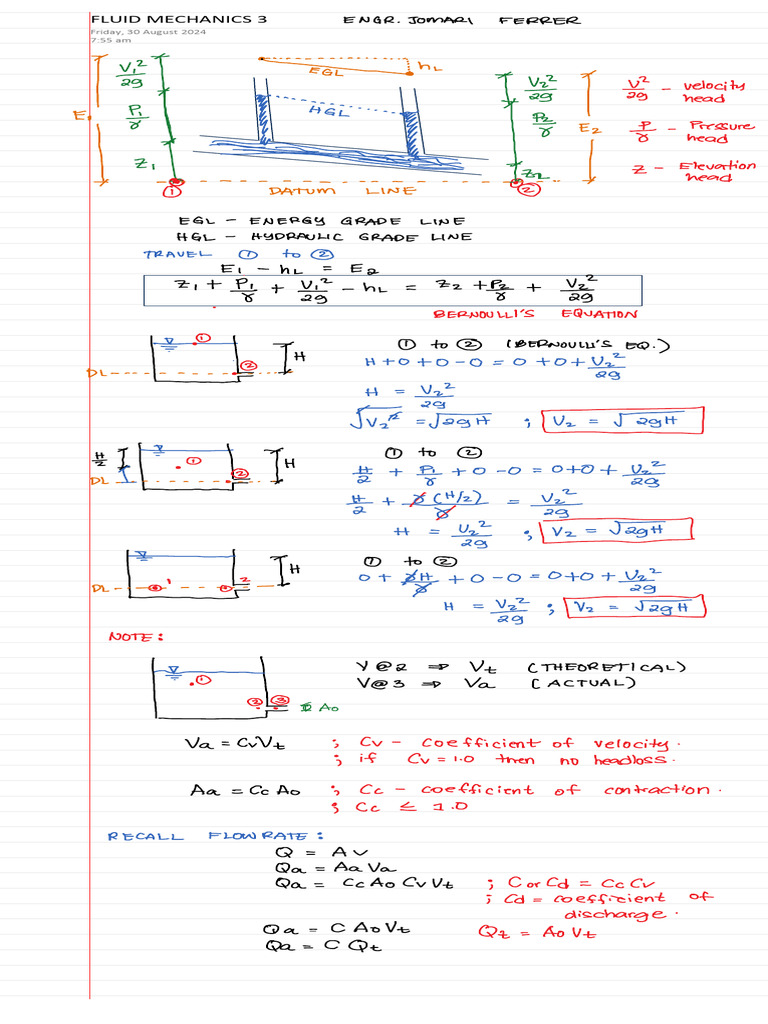 FLUID MECHANICS 3 ENGR. JOMARI FERRER
Friday, 30 August 2024
7:55 am
V₁²/2g
P₁/γ
Z₁
E₁
EGL
hL
HGL
V₂²/2g
P₂/γ
Z₂
E₂
V²/2g - velocity head
P/γ - Pressure head
Z - Elevation head
① DATUM LINE ②
EGL - ENERGY GRADE LINE
HGL - HYDRAULIC GRADE LINE
TRAVEL ① to ②
E₁ - hL = E₂
Z₁ + P₁/γ + V₁²/2g - hL = Z₂ + P₂/γ + V₂²/2g
BERNOULLI'S EQUATION
① ② H DL
① to ② (BERNOULLI'S EQ.)
H + 0 + 0 - 0 = 0 + 0 + V₂²/2g
H = V₂²/2g
√V₂² = √2gH ; V₂ = √2gH
H/2 ① ② H DL
① to ②
H/2 + P₁/γ + 0 - 0 = 0 + 0 + V₂²/2g
H/2 + γ(H/2)/γ = V₂²/2g
H = V₂²/2g ; V₂ = √2gH
1 2 H DL
① to ②
0 + γH/γ + 0 - 0 = 0 + 0 + V₂²/2g
H = V₂²/2g ; V₂ = √2gH
NOTE:
① ② ③ Ao
V@2 ⇒ Vt (THEORETICAL)
V@3 ⇒ Va (ACTUAL)
Va = CvVt ; Cv - coefficient of velocity.
; if Cv = 1.0 then no headloss.
Aa = Cc Ao ; Cc - coefficient of contraction.
; Cc ≤ 1.0
RECALL FLOWRATE:
Q = AV
Qa = Aa Va
Qa = Cc Ao Cv Vt ; C or Cd = Cc Cv
; Cd = coefficient of discharge.
Qa = C Ao Vt Qt = Ao Vt
Qa = C Qt